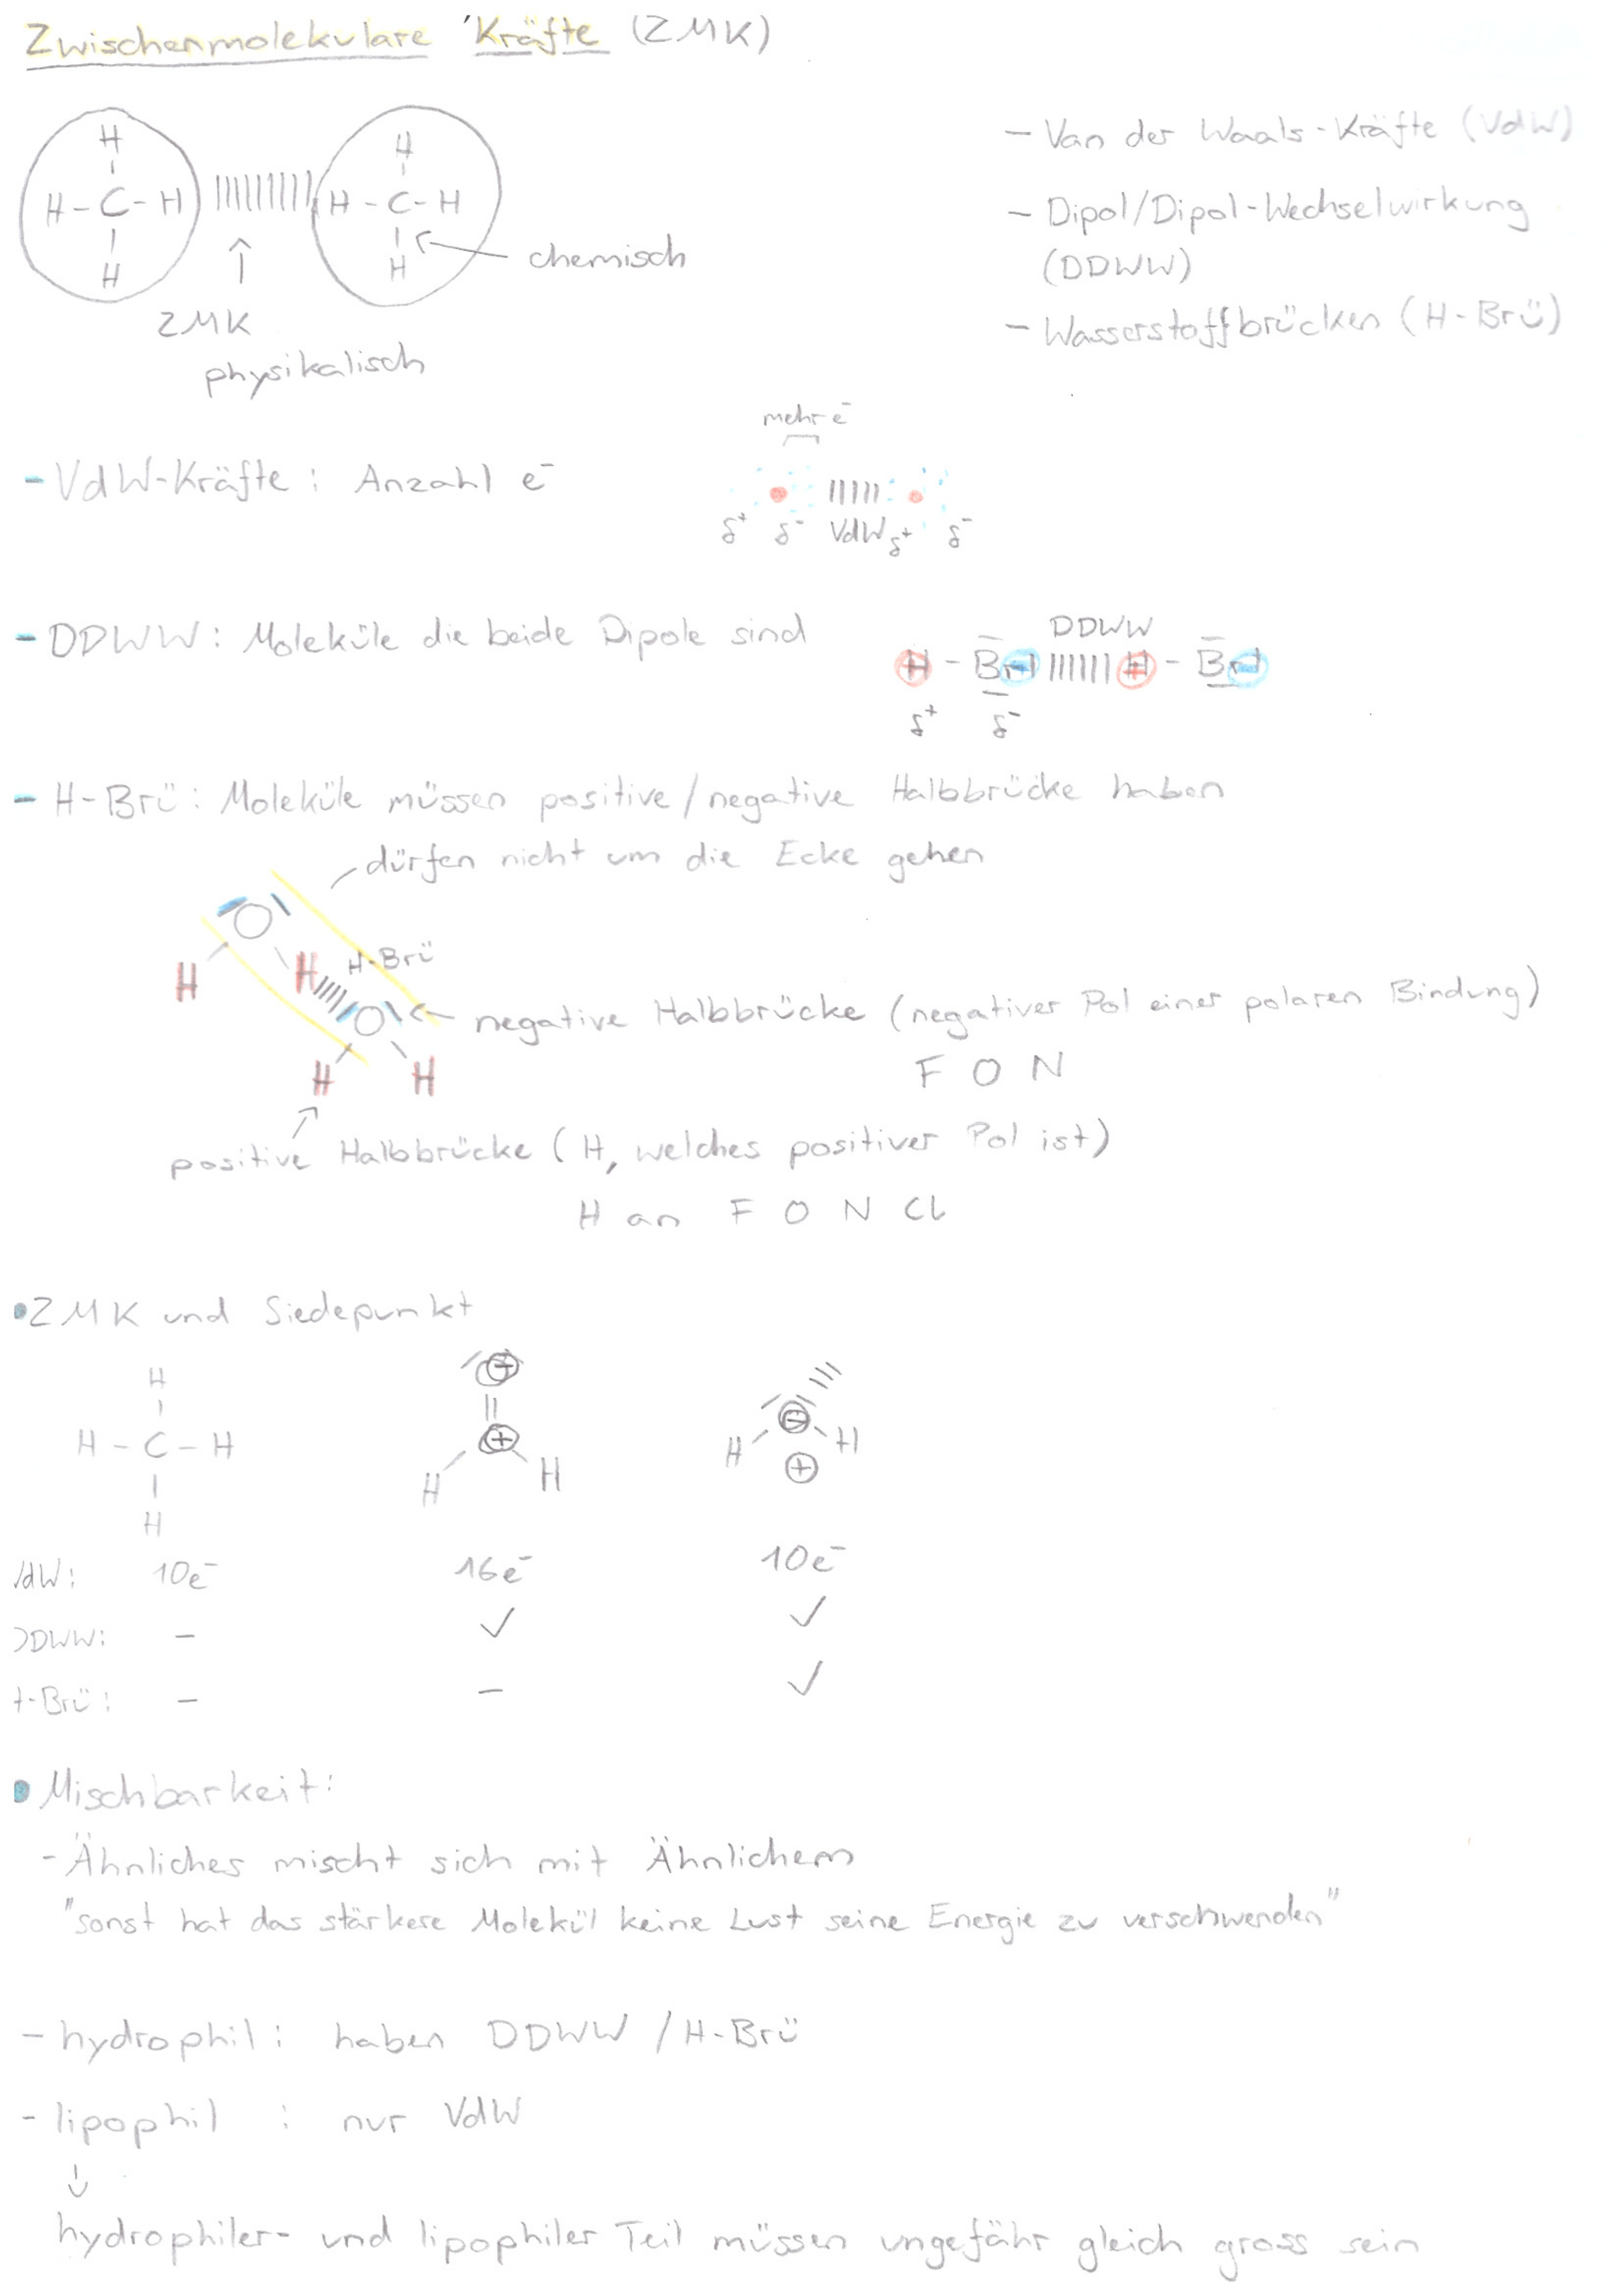 Zwischenmolekulare Kräfte (ZMK)
H H
H-C-H H-C-H
H H
chemisch
ZMK
physikalisch
- Van der Waals-Kräfte (VdW)
- Dipol/Dipol-Wechselwirkung
(DDWW)
- Wasserstoffbrücken (H-Brü)
mehr e⁻
- VdW-Kräfte: Anzahl e⁻
δ⁺ δ⁻ VdW δ⁺ δ⁻
- DDWW: Moleküle die beide Dipole sind
DDWW
H - Br H - Br
δ⁺ δ⁻
- H-Brü: Moleküle müssen positive/negative Halbbrücke haben
dürfen nicht um die Ecke gehen
O
H H H-Brü
O negative Halbbrücke (negativer Pol einer polaren Bindung)
H H F O N
positive Halbbrücke (H, welches positiver Pol ist)
H an F O N Cl
•ZMK und Siedepunkt
H
H - C - H
H
O
+
H H
⊖
H H
+
VdW: 10e⁻ 16e⁻ 10e⁻
DDWW: - ✓ ✓
H-Brü: - - ✓
• Mischbarkeit:
- Ähnliches mischt sich mit Ähnlichem
"sonst hat das stärkere Molekül keine Lust seine Energie zu verschwenden"
- hydrophil: haben DDWW / H-Brü
- lipophil : nur VdW
↓
hydrophiler- und lipophiler Teil müssen ungefähr gleich gross sein